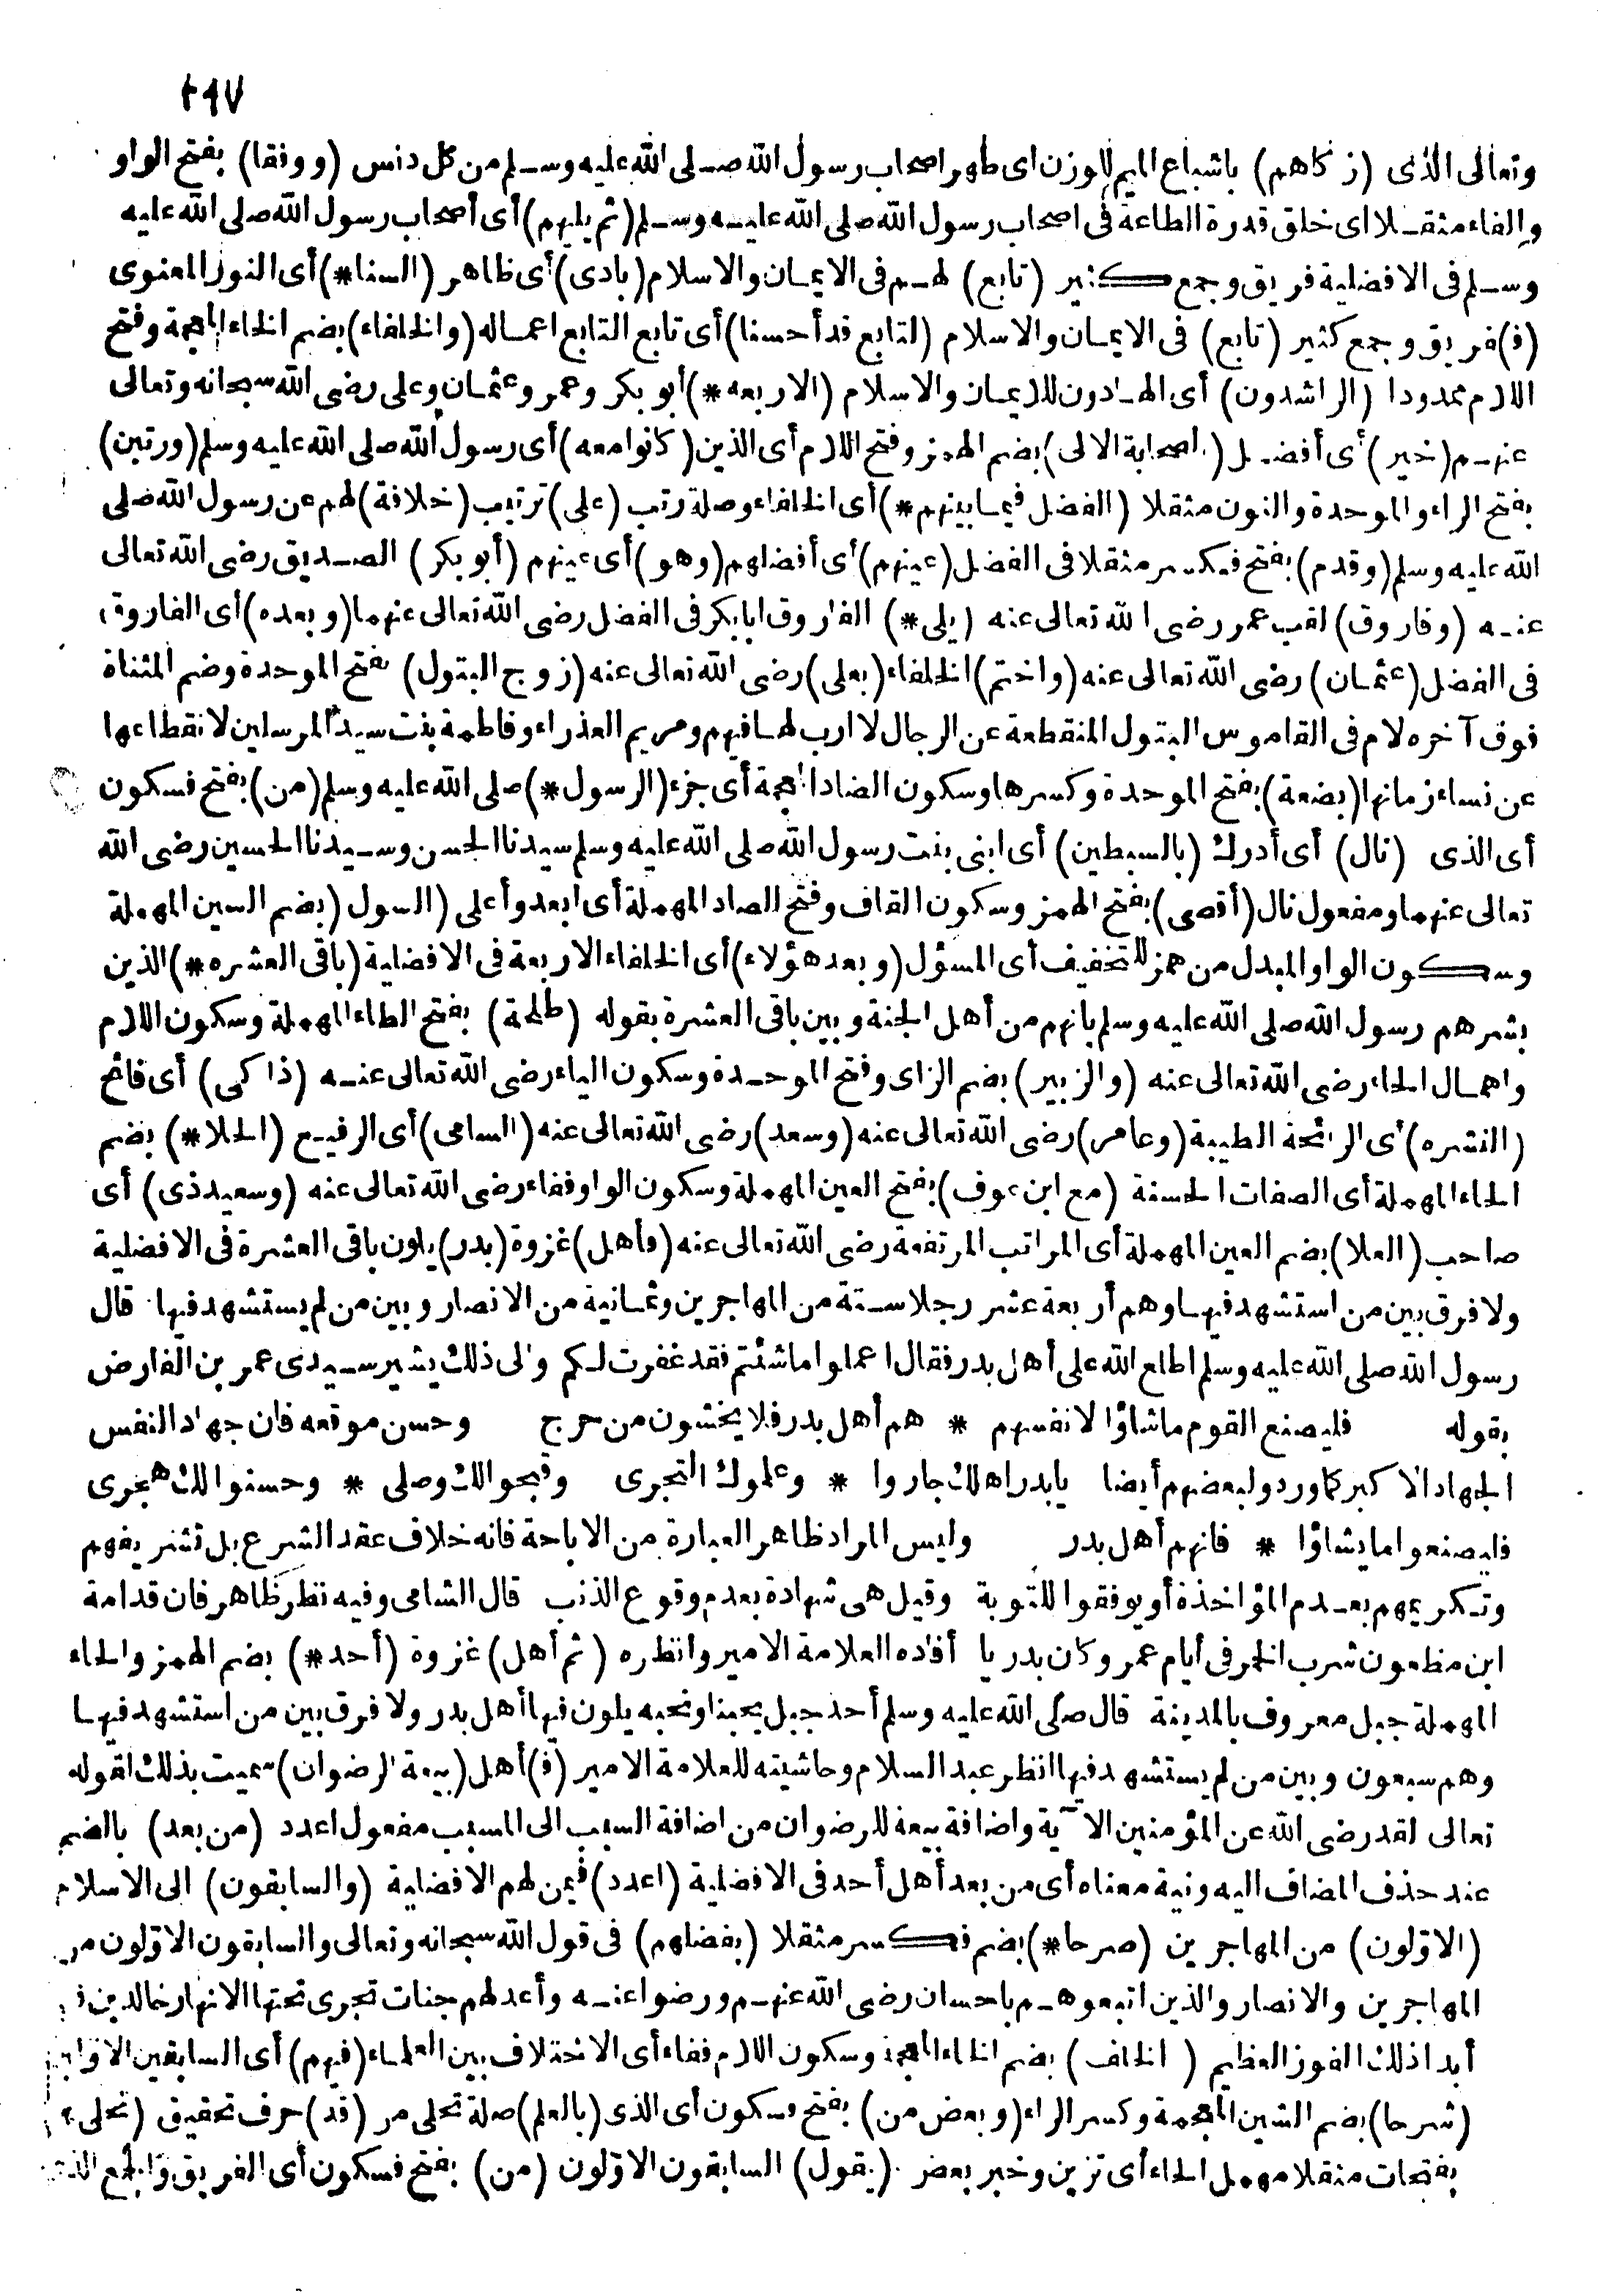 ٢٩٧
وتعالى الذى (زكاهم) باشباع الميم للوزن اى طهر اصحاب رسول الله صلى الله عليه وسلم من كل دنس (ووفقا) بفتح الواو
والفاء مثقلا اى خلق قدرة الطاعة فى اصحاب رسول الله صلى الله عليه وسلم (ثم يليهم) أى أصحاب رسول الله صلى الله عليه
وسلم فى الافضلية فريق وجمع كثير (تابع) لهم فى الايمان والاسلام (بادى) أى ظاهر (السنا*) أى النور المعنوى
(ف) فريق وجمع كثير (تابع) فى الايمان والاسلام (لتابع قد أحسنا) أى تابع التابع اعماله (والخلفاء) بضم الخاء المعجمة وفتح
اللام ممدودا (الراشدون) أى الهادون للايمان والاسلام (الاربعه*) أبو بكر وعمر وعثمان وعلى رضى الله سبحانه وتعالى
عنهم (خير) أى أفضل (اصحابة الالى) بضم الهمز وفتح اللام أى الذين (كانوا معه) أى رسول الله صلى الله عليه وسلم (ورتبن)
بفتح الراء والموحدة والنون مثقلا (الفضل فيما بينهم*) أى الخلفاء وصلة رتب (على) ترتيب (خلافة) لهم عن رسول الله صلى
الله عليه وسلم (وقدم) بفتح فكسر مثقلا فى الفضل (عينهم) أى أفضلهم (وهو) أى عينهم (أبو بكر) الصديق رضى الله تعالى
عنه (وفاروق) لقب عمر رضى الله تعالى عنه (يلى*) الفاروق ابا بكر فى الفضل رضى الله تعالى عنهما (وبعده) أى الفاروق
فى الفضل (عثمان) رضى الله تعالى عنه (واختم) الخلفاء (بعلى) رضى الله تعالى عنه (زوج البتول) بفتح الموحدة وضم المثناة
فوق آخره لام فى القاموس البتول المنقطعة عن الرجال لا ارب لها فيهم ومريم العذراء وفاطمة بنت سيد المرسلين لانقطاعها
عن نساء زمانها (بضعة) بفتح الموحدة وكسرها وسكون الضاد المعجمة أى جزء (الرسول*) صلى الله عليه وسلم (من) بفتح فسكون
أى الذى (نال) أى أدرك (بالسبطين) أى ابنى بنت رسول الله صلى الله عليه وسلم سيدنا الحسن وسيدنا الحسين رضى الله
تعالى عنهما ومفعول نال (أقصى) بفتح الهمز وسكون القاف وفتح الصاد المهملة أى ابعد وأعلى (السول (بضم السين المهملة
وسكون الواو المبدل من همز للتخفيف أى المسؤل (وبعد هؤلاء) أى الخلفاء الاربعة فى الافضلية (باقى العشره*) الذين
بشرهم رسول الله صلى الله عليه وسلم بانهم من أهل الجنة وبين باقى العشرة بقوله (طلحة) بفتح الطاء المهملة وسكون اللام
واهمال الحاء رضى الله تعالى عنه (والزبير) بضم الزاى وفتح الموحدة وسكون الياء رضى الله تعالى عنه (ذاكى) أى فائح
(النشره) أى الرائحة الطيبة (وعامر) رضى الله تعالى عنه (وسعد) رضى الله تعالى عنه (السامى) أى الرفيع (الحلا*) بضم
الحاء المهملة أى الصفات الحسنة (مع ابن عوف) بفتح العين المهملة وسكون الواو ففاء رضى الله تعالى عنه (وسعيد ذى) أى
صاحب (العلا) بضم العين المهملة أى المراتب المرتفعة رضى الله تعالى عنه (فأهل) غزوة (بدر) يلون باقى العشرة فى الافضلية
ولا فرق بين من استشهد فيها وهم أربعة عشر رجلا ستة من المهاجرين وثمانية من الانصار وبين من لم يستشهد فيها قال
رسول الله صلى الله عليه وسلم اطلع الله على أهل بدر فقال اعملوا ما شئتم فقد غفرت لكم والى ذلك يشير سيدى عمر بن الفارض
بقوله فليصنع القوم ماشاؤا لانفسهم * هم أهل بدر فلا يخشون من حرج وحسن موقعه فان جهاد النفس
الجهاد الاكبر كما ورد ولبعضهم أيضا يا بدر اهلك جاروا * وعلموك التجرى وقبحوا لك وصلى * وحسنوا لك هجرى
فليصنعوا ما يشاؤا * فانهم أهل بدر وليس المراد ظاهر العبارة من الاباحة فانه خلاف عقد الشرع بل تشريفهم
وتكريمهم بعدم المؤاخذة أو يوفقوا للتوبة وقيل هى شهادة بعدم وقوع الذنب قال الشامى وفيه نظر ظاهر فان قدامة
ابن مظعون شرب الخمر فى أيام عمر وكان بدريا أفاده العلامة الامير وانظره (ثم أهل) غزوة (أحد*) بضم الهمز والحاء
المهملة جبل معروف بالمدينة قال صلى الله عليه وسلم أحد جبل يحبنا ونحبه يلون فيها أهل بدر ولا فرق بين من استشهد فيها
وهم سبعون وبين من لم يستشهد فيها انظر عبد السلام وحاشيته للعلامة الامير (ف) أهل (بيعة الرضوان) سميت بذلك لقوله
تعالى لقد رضى الله عن المؤمنين الآية واضافة بيعة للرضوان من اضافة السبب الى المسبب مفعول اعدد (من بعد) بالضم
عند حذف المضاف اليه ونية معناه أى من بعد أهل أحد فى الافضلية (اعدد) فيمن لهم الافضلية (والسابقون) الى الاسلام
(الاولون) من المهاجرين (صرحا*) بضم فكسر مثقلا (بفضلهم) فى قول الله سبحانه وتعالى والسابقون الاولون من
المهاجرين والانصار والذين اتبعوهم باحسان رضى الله عنهم ورضوا عنه وأعد لهم جنات تجرى تحتها الانهار خالدين
أبدا ذلك الفوز العظيم (الخلف) بضم الخاء المعجمة وسكون اللام ففاء أى الاختلاف بين العلماء (فيهم) أى السابقين
(شرحا) بضم الشين المعجمة وكسر الراء (وبعض من) بفتح وسكون أى الذى (بالعلم) صلة تحلى مر (قد) حرف تحقيق (تحلى
بفتحات مثقلا مهمل الحاء أى تزين وخبر بعض (يقول) السابقون الاولون (من) بفتح فسكون أى الفريق والجمع